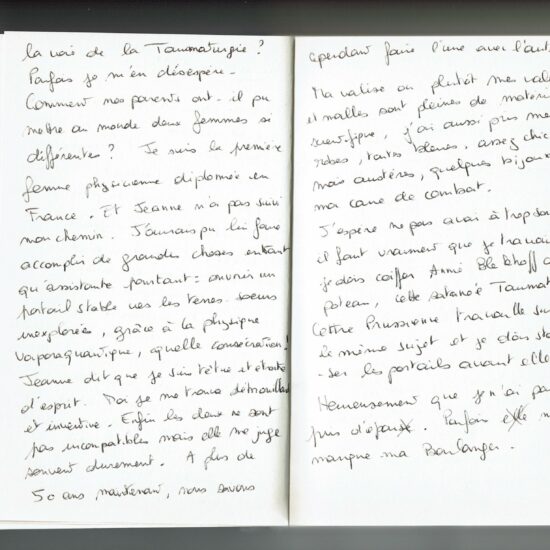 la voie de la Taumaturgie ?
Parfois je m'en désespère.
Comment mes parents ont-il pu
mettre au monde deux femmes si
différentes ? Je suis la première
femme physicienne diplomée en
France. Et Jeanne n'a pas suivi
mon chemin. J'aurais pu lui faire
accomplir de grandes choses en tant
qu'assistante pourtant : ouvrir un
portail stable vers les terres
inexplorées, grâce à la physique
vaporaquantique, quelle consécration !
Jeanne dit que je suis têtue et étroite
d'esprit. Moi je me trouve débrouillarde
et inventive. Enfin les deux ne sont
pas incompatibles mais elle me juge
souvent durement. A plus de
50 ans maintenant, nous savons
cependant faire l'une avec l'aut
Ma valise ou plutôt mes vali
et malles sont pleines de matérie
scientifique, j'ai aussi pris mes
robes, toutes bleues, assez chic
mais austères, quelques bijoux
ma cane de combat.
J'espère ne pas avoir à trop
il faut vraiment que je travai
je dois coiffer Annie au
poteau, cette satanée Taumat
Cette Prussienne travaille su
le même sujet et je dois sta
-ser les portails avant elle
Heureusement que je n'ai pa
pris d'époux. Parfois elle m
manque ma Boulanger.